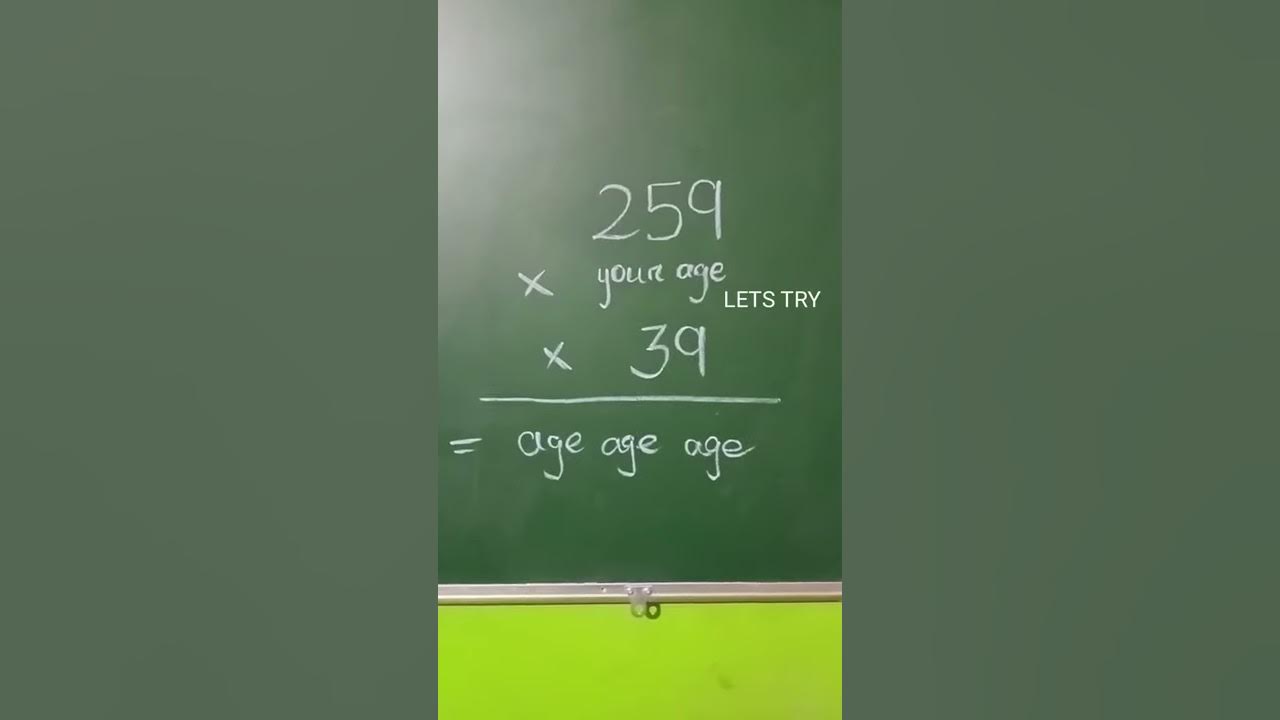 259
× your age
LETS TRY
× 39
= age age age